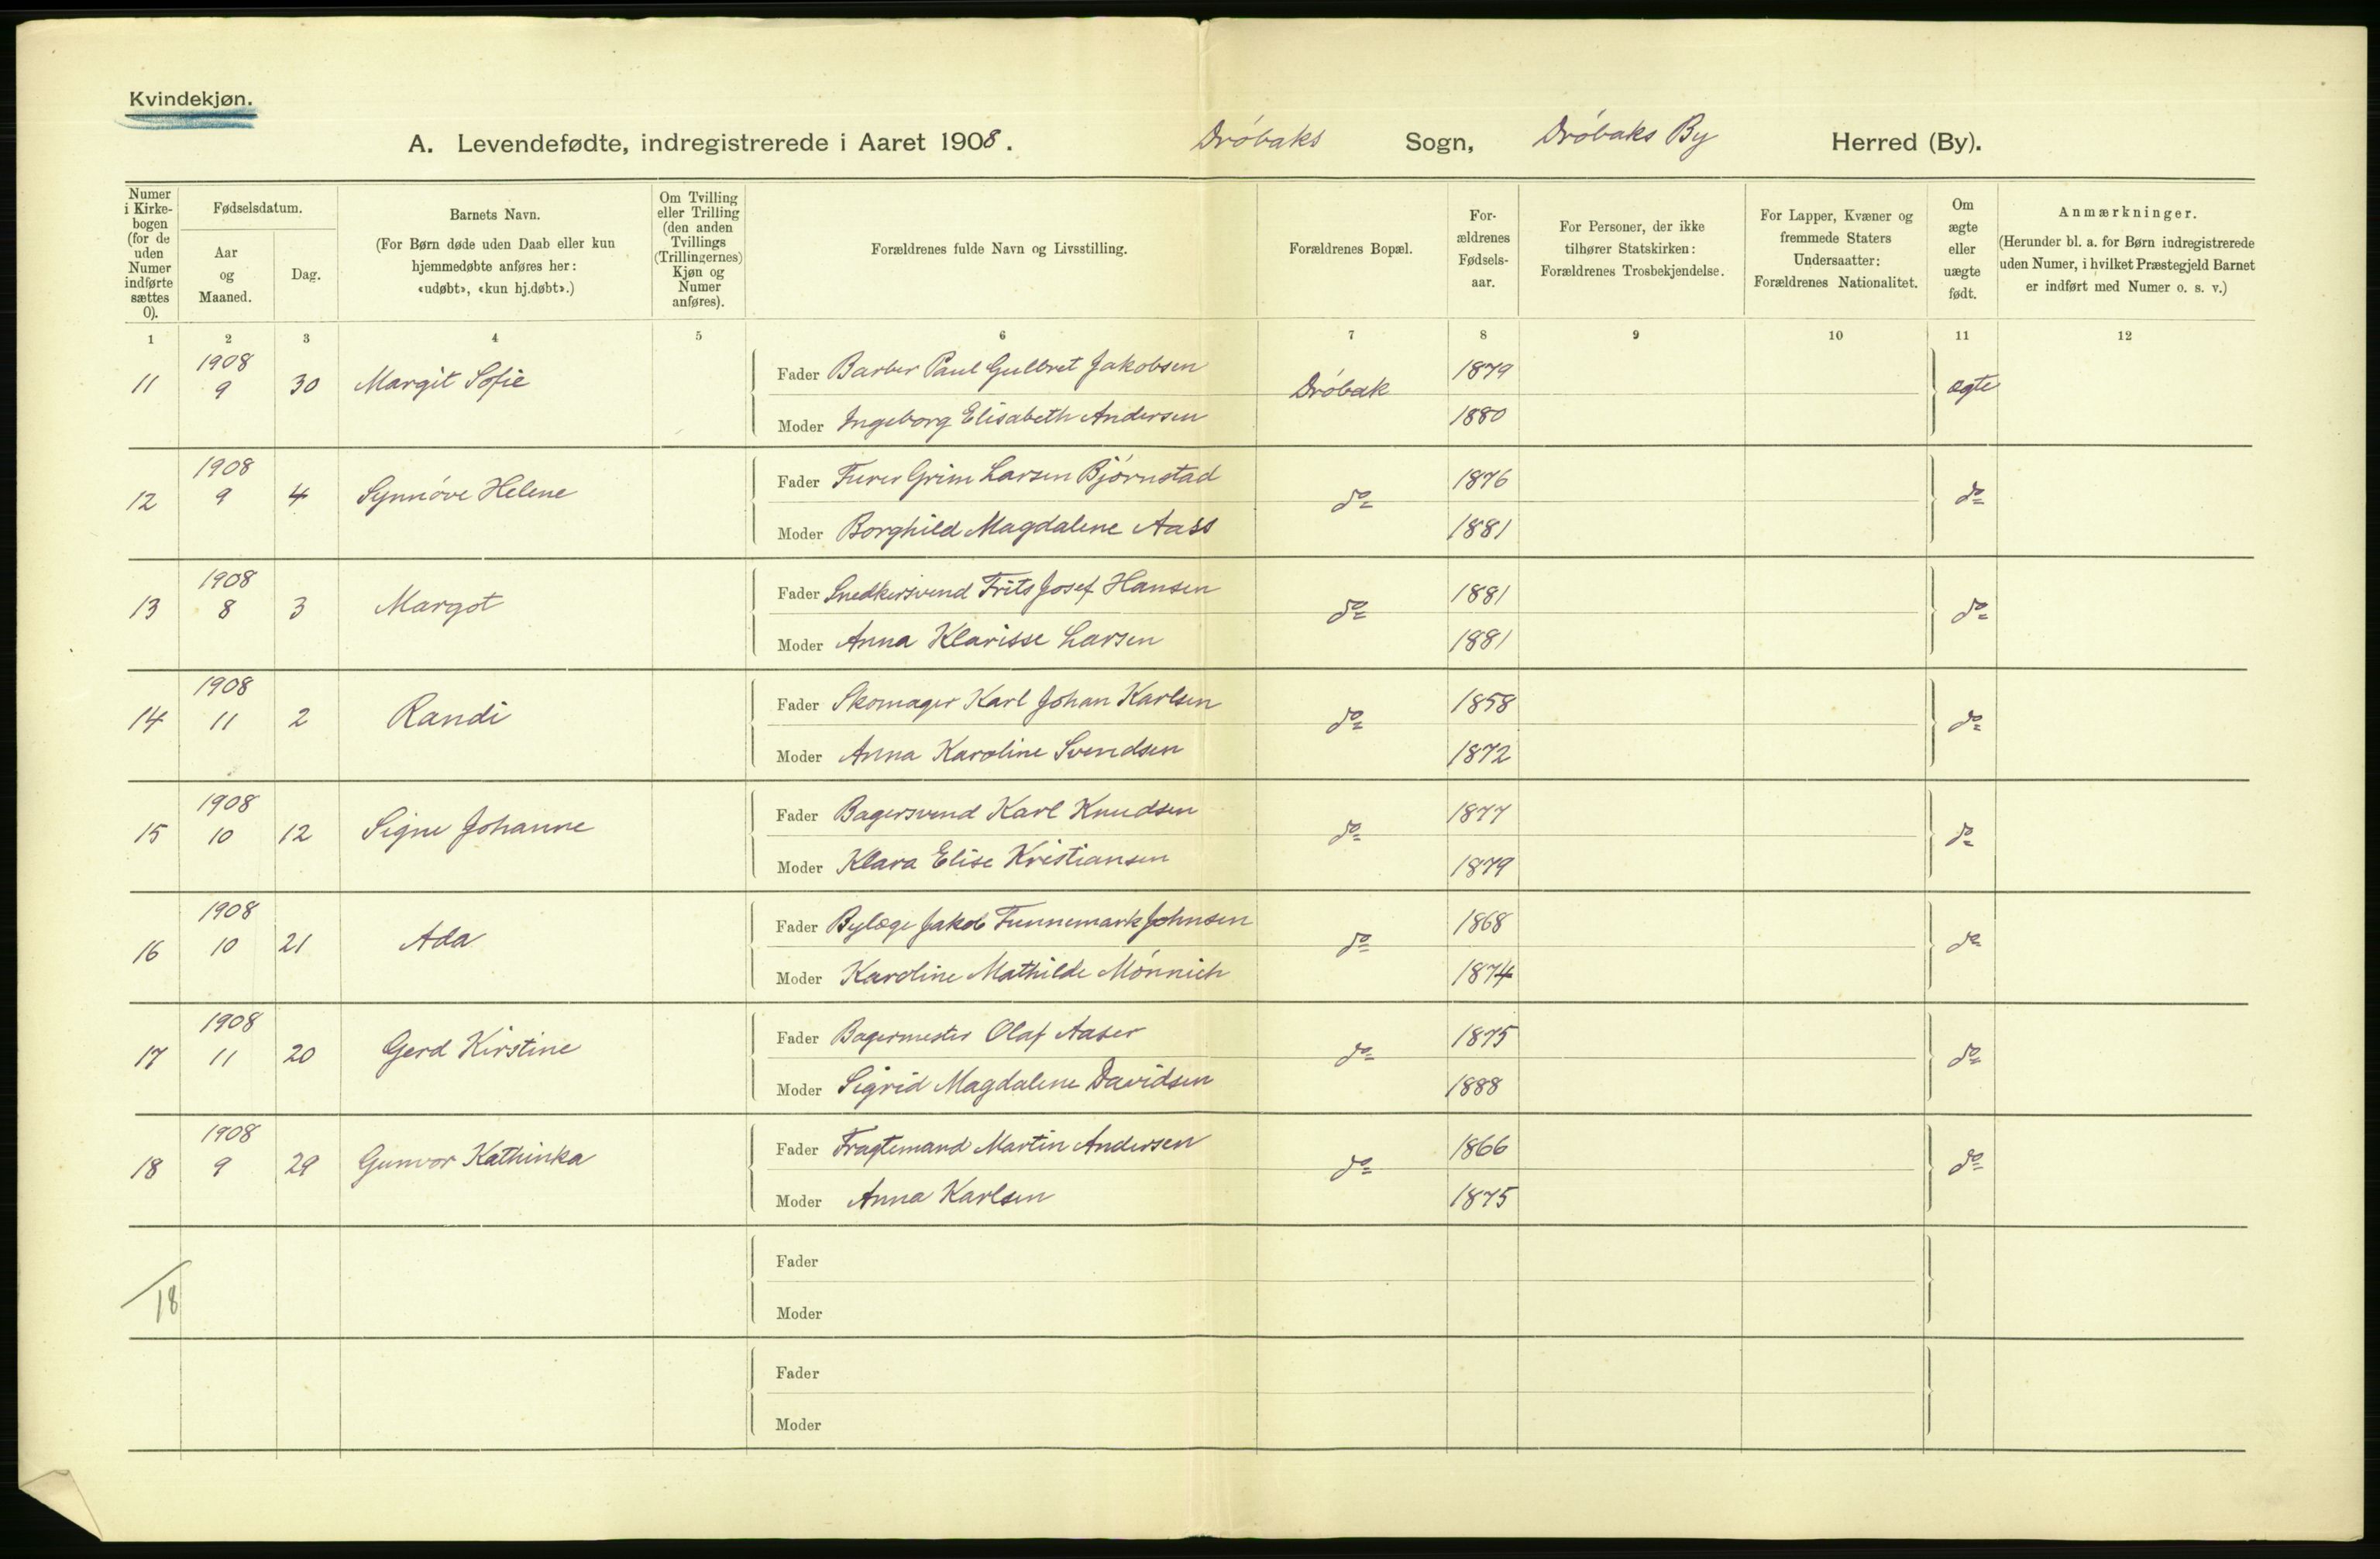 Kvindekjøn.
A. Levendefødte, indregistrerede i Aaret 1908. Drøbaks Sogn, Drøbaks By Herred (By).
Numer i Kirkebogen (for de uden Numer indførte sættes 0).
Fødselsdatum.
Aar og Maaned.
Dag.
Barnets Navn.
(For Børn døde uden Daab eller kun hjemmedøbte anføres her: «udøbt», «kun hj.døbt».)
Om Tvilling eller Trilling (den anden Tvillings (Trillingernes) Kjøn og Numer anføres).
Forældrenes fulde Navn og Livsstilling.
Forældrenes Bopæl.
Forældrenes Fødselsaar.
For Personer, der ikke tilhører Statskirken: Forældrenes Trosbekjendelse.
For Lapper, Kvæner og fremmede Staters Undersaatter: Forældrenes Nationalitet.
Om ægte eller uægte født.
Anmærkninger.
(Herunder bl. a. for Børn indregistrerede uden Numer, i hvilket Præstegjeld Barnet er indført med Numer o. s. v.)
1 2 3 4 5 6 7 8 9 10 11 12
11 1908 9 30 Margit Sofie Fader Barber Paul Gulbret Jakobsen Drøbak 1879 ægte
Moder Ingeborg Elisabeth Andersen 1880
12 1908 9 4 Synnøve Helene Fader Grim Larsen Bjørnstad do 1876 do
Moder Borghild Magdalene Aass 1881
13 1908 8 3 Margot Fader Snedkersvend Frits Josef Hansen do 1881 do
Moder Anna Klarisse Larsen 1881
14 1908 11 2 Randi Fader Skomager Karl Johan Karlsen do 1858 do
Moder Anna Karoline Svendsen 1872
15 1908 10 12 Signe Johanne Fader Bagersvend Karl Knudsen do 1877 do
Moder Klara Elise Kristiansen 1879
16 1908 10 21 Ada Fader Bylæge Jakob Funnemark Johnsen do 1868 do
Moder Karoline Mathilde Mønnich 1874
17 1908 11 20 Gerd Kirstine Fader Bagermester Olaf Aaser do 1875 do
Moder Sigrid Magdalene Davidsen 1888
18 1908 9 29 Gunvor Kathinka Fader Fragtemand Martin Andersen do 1866 do
Moder Anna Karlsen 1875
18
Fader
Moder
Fader
Moder